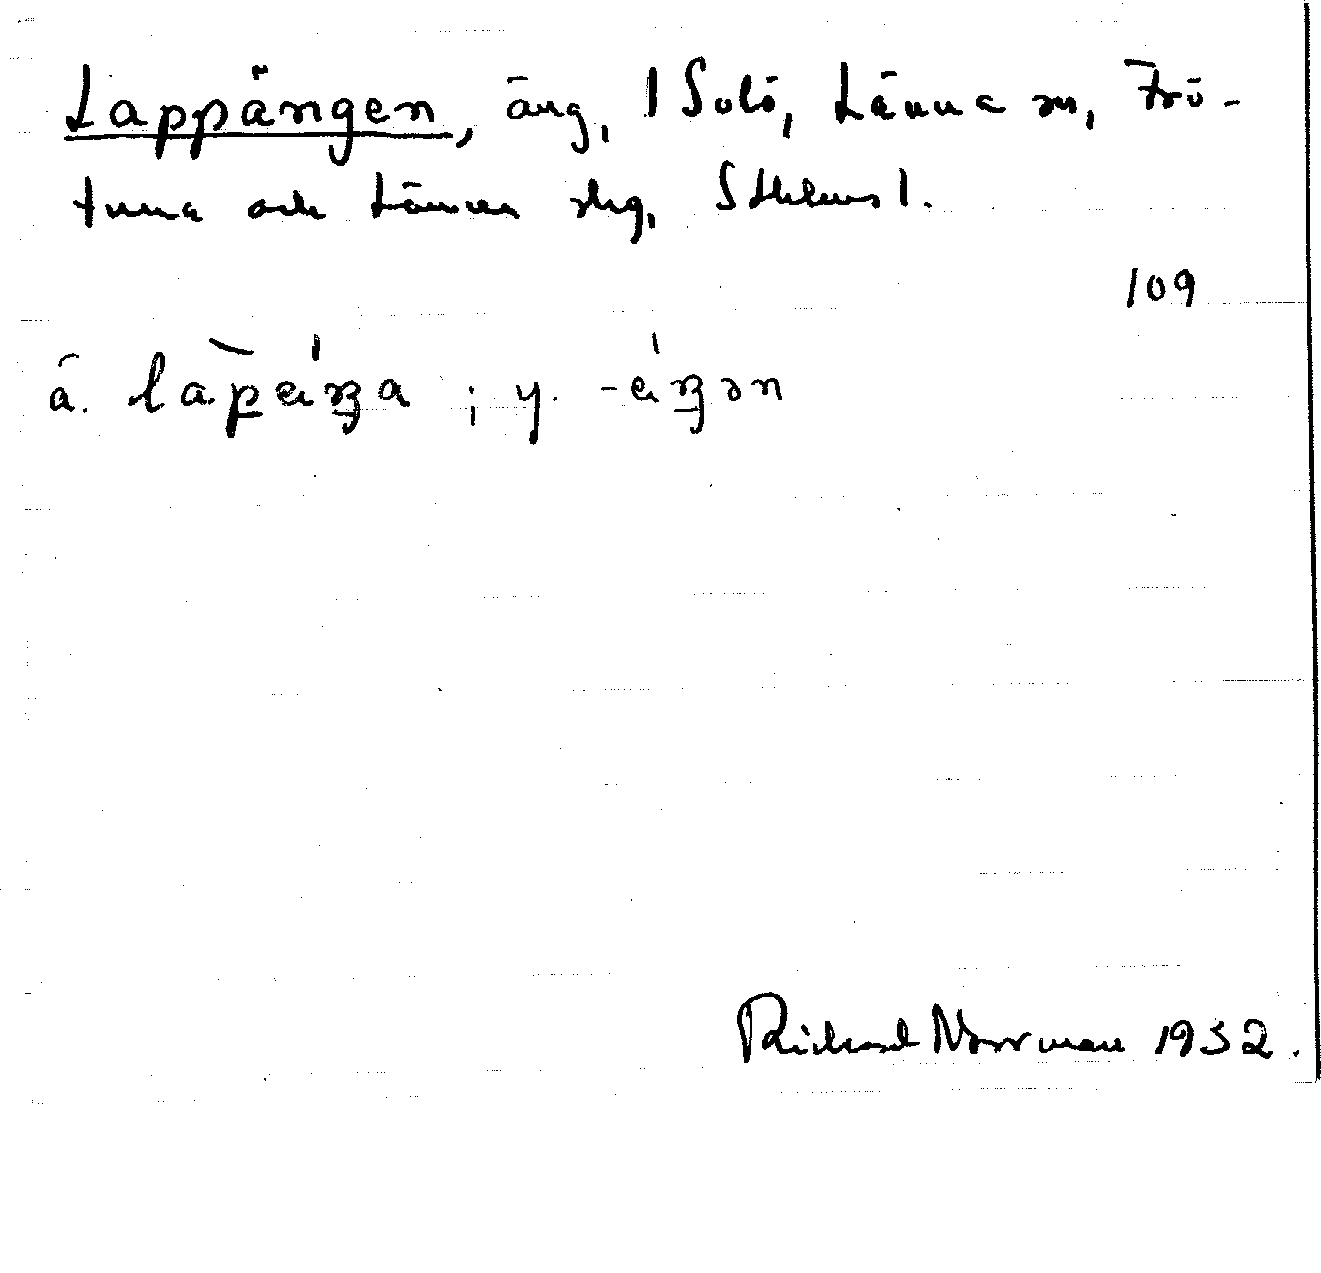 Lappängen, äng, 1 Solö, Länna sn, Frö-
tuna och Länna skg, Sthlms l.
109
ä. lap̱äŋa ; y. -äŋən
Richard Norrman 1932.